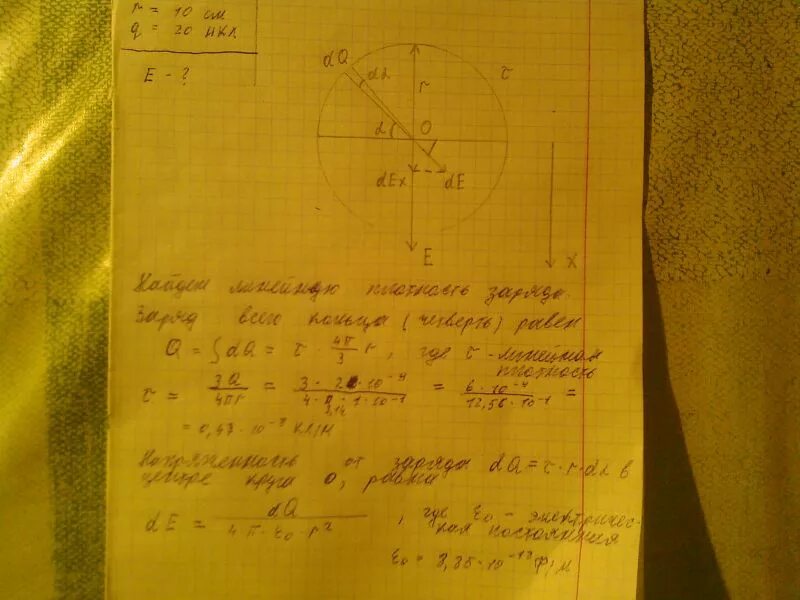 r = 10 см
q = 20 нКл
E - ?
dQ
dα
r
τ
α
O
dEx
dE
E
x
Найдем линейную плотность заряда.
Заряд всего кольца (четверть) равен
Q = ∫dQ = τ · 4π/3 r, где τ - линейная плотность
τ = 3Q/4πr = 3 · 20 · 10⁻⁹ / 4 · 3,14 · 1 · 10⁻¹ = 6 · 10⁻⁸ / 12,56 · 10⁻¹ =
= 0,47 · 10⁻⁷ Кл/м
Напряженность от заряда dQ = τ · r · dα в
центре круга O, равна
dE = dQ / 4π · ε₀ · r² , где ε₀ - электричес-
кая постоянная
ε₀ = 8,85 · 10⁻¹² Ф/м